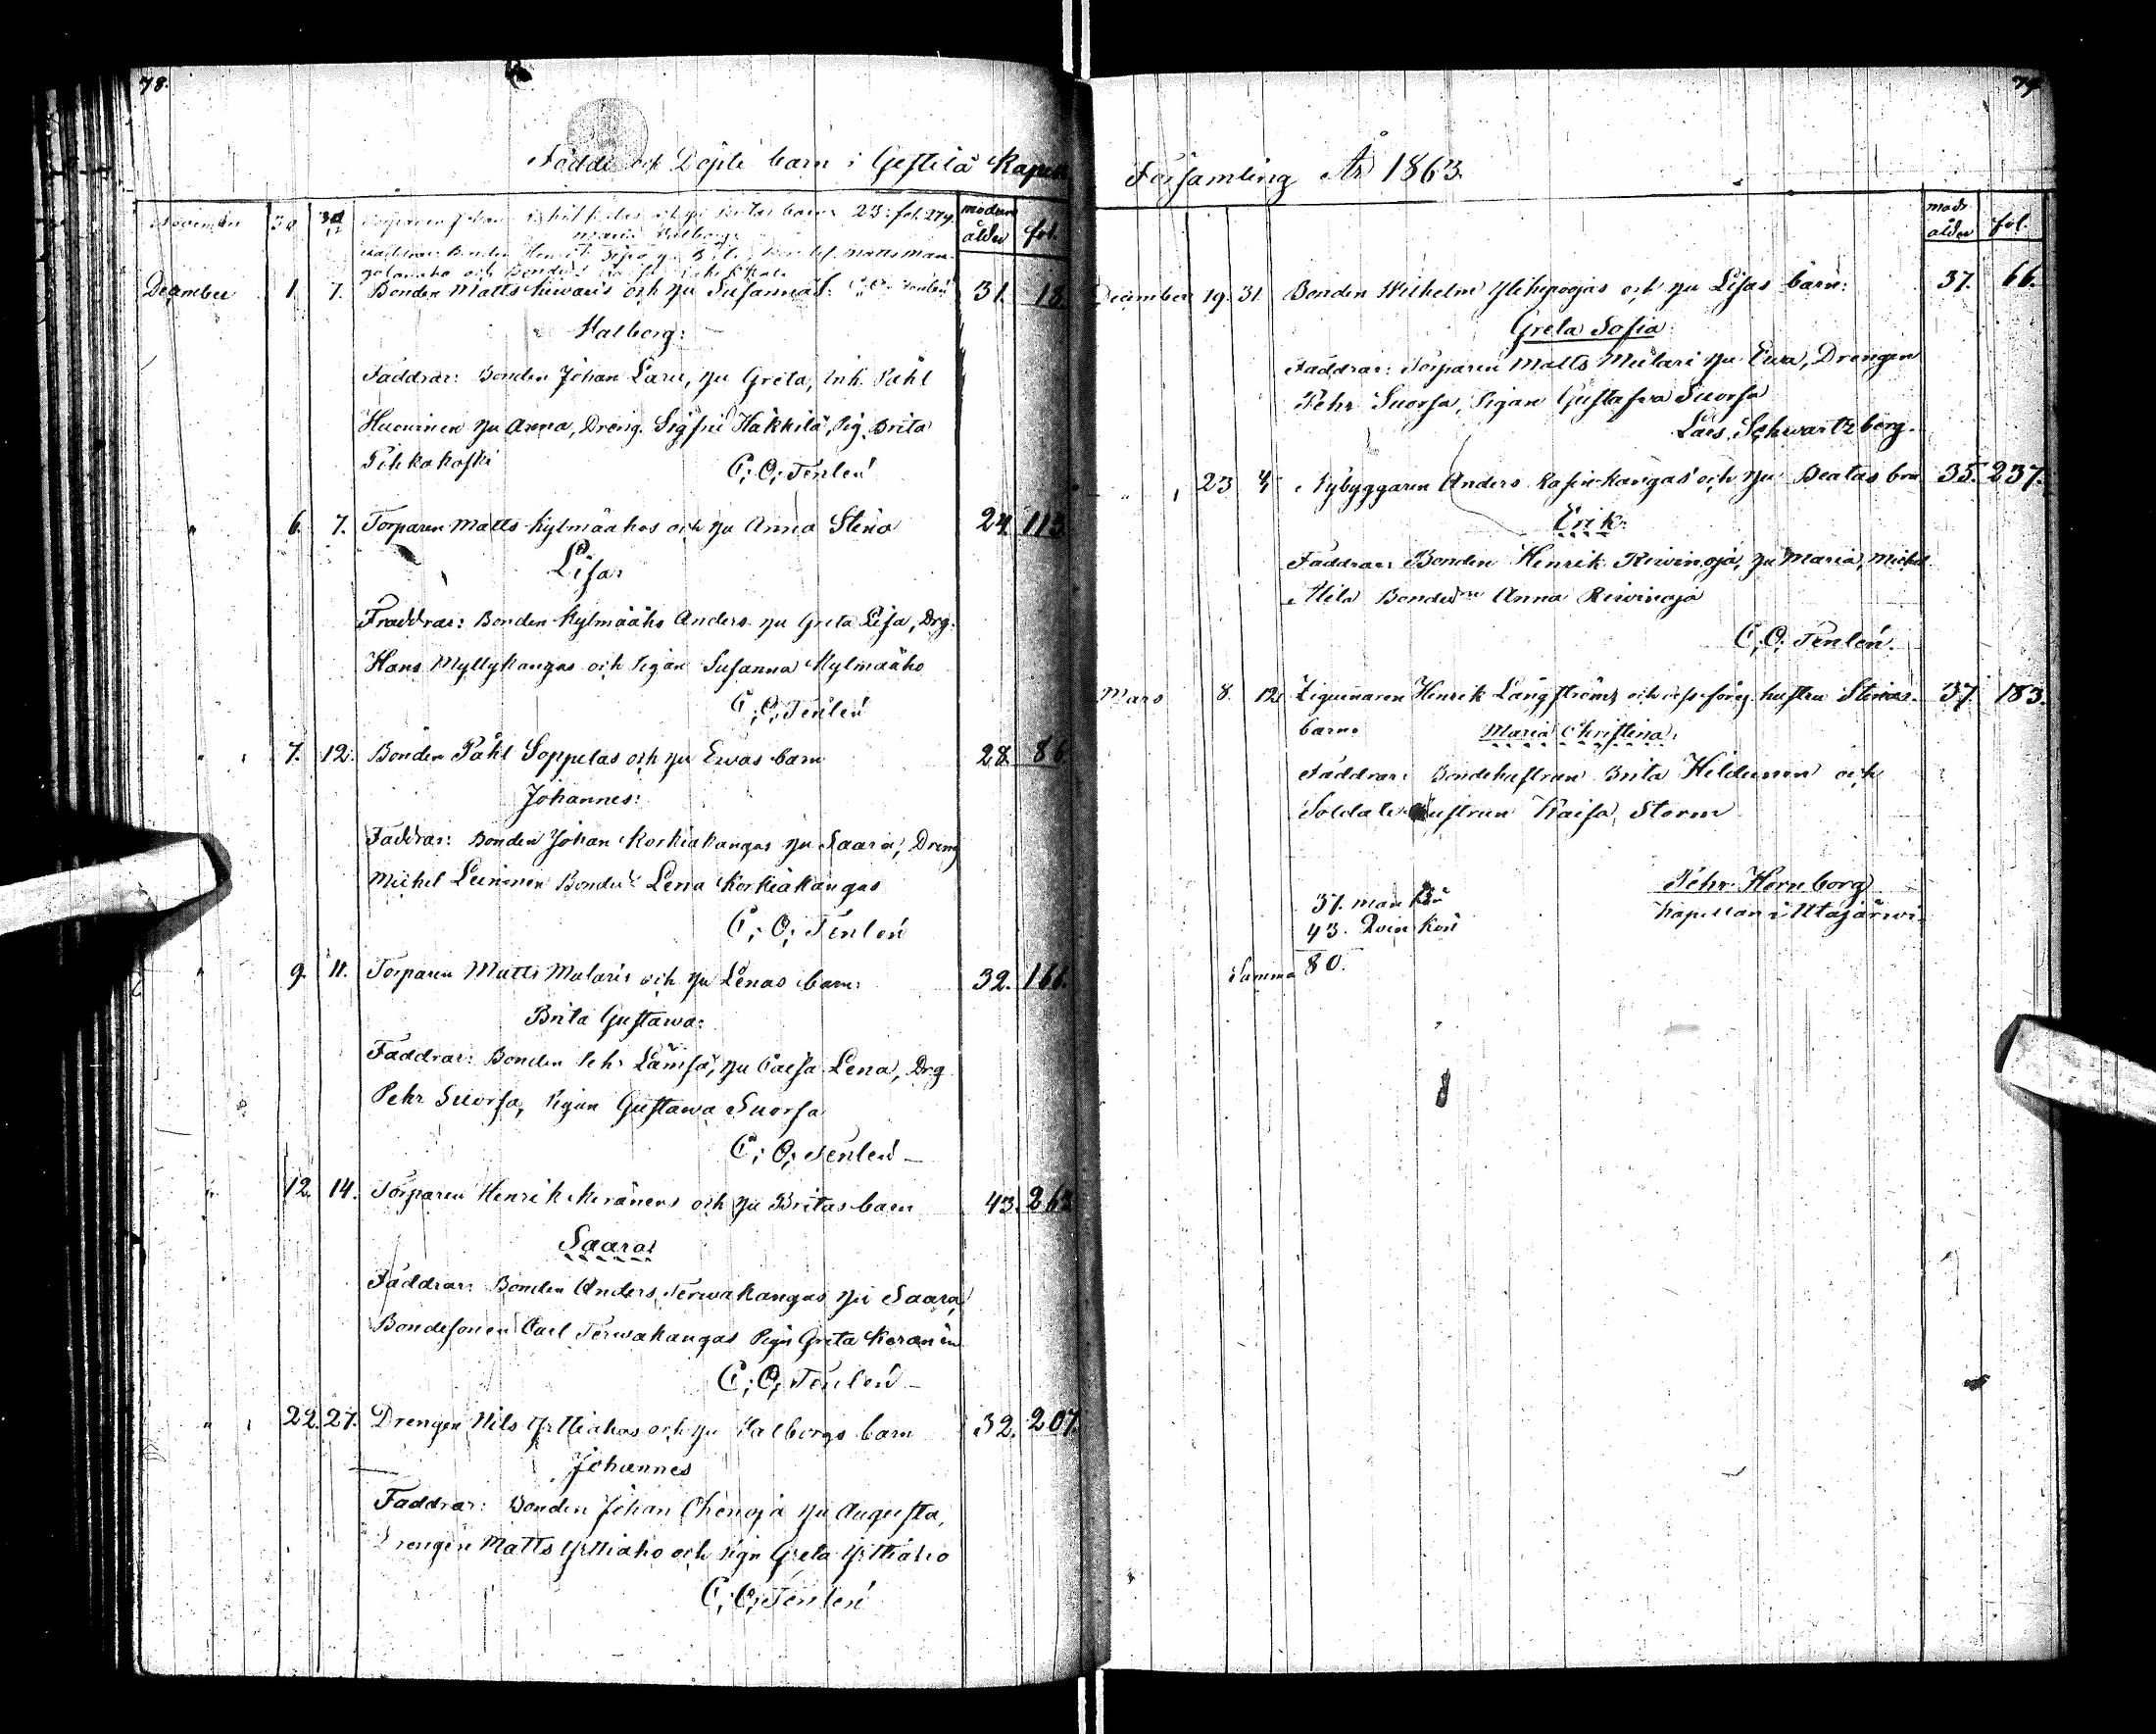 78.
Födde och Döpte barn i Gestilä Kapell
moderns ålder fol.
November 30 Torparen Johan och hu Britas barn 23: fol. 279.
Maria Walborg:
Faddrar: Bonden Henrik Matts Man-
galanaho och Bonded
December 1. 7. Bonden Matts Kiwaris och hu Susannas: C. O. Tenlén 31. 18.
Walborg:
Faddrar: Bonden Johan Laru, hu Greta, Inh. Påhl
Hucurinen hu Anna, Dreng. Sigfrid Häkkilä, Pig. Brita
Pihkakoski C; O; Tenlén
" 6. 7. Torparen Matts Kylmäahos och hu Anna Stina 24. 113.
Lisa:
Fraddrar: Bonden Kylmääho Anders hu Greta Lisa, Drg.
Hans Myllykangas och Pigan Susanna Kylmaäho
C; O; Tenlén
" 7. 12. Bonden Påhl Soppelas och hu Ewas barn 28. 86
Johannes:
Faddrar: Bonden Johan Korkiakangas hu Saara, Dreng
Michel Leinonen Bonded: Lena Korkiakangas
C; O; Tenlén
" 9. 11. Torparen Matts Mularis och hu Lenas barn: 32. 166.
Brita Gustawa:
Faddrar: Bonden Pehr Lämsä, hu Caisa Lena, Drg
Pehr Suorsa, Pigan Gustawa Suorsa
C; O; Tenlén
" 12. 14. Torparen Henrik Keränens och hu Britas barn 43. 263
Saara:
Faddrar: Bonden Anders Terwakangas hu Saara,
Bondesonen Carl Terwakangas Pign Greta Keranen
C; O; Tenlén
" 22. 27. Drengen Nils Yrttiahos och hu Walborgs barn 32. 207.
Johannes
Faddrar: Bonden Johan Ohenoja hu Augusta,
Drengen Matts Yrttiaho och pign Greta Yrttiaho
C; O; Tenlén
79
Församling År 1863.
modr ålder fol.
December 19. 31. Bonden Wilhelm Ylihepoojas och hu Lisas barn: 37. 66.
Greta Sofia:
Faddrar: Torparen Matts Mulari hu Ewa, Drengen
Pehr Suorsa, Pigan Gustafwa Suorsa
Lars Schwartzberg.
" 23 Nybyggaren Anders Kasinkangas och hu Beatas brn 35. 237.
Erik:
Faddrar: Bonden Henrik Riwinoja, hu Maria, Michel
Hila Bonded Anna Riwinoja
C; O; Tenlén.
Mars 8. 12. Zigeunaren Henrik Långströms och dess föreg. hustru Stinas 37. 183.
barn: Maria Christina:
Faddrar: Bondehustrun Brita Hildunen och
Soldatshustrun Kaisa Storm
Pehr Hornborg
Kapellan i Utajärwi
37. man kön
43. Qvin kön
Summa 80.